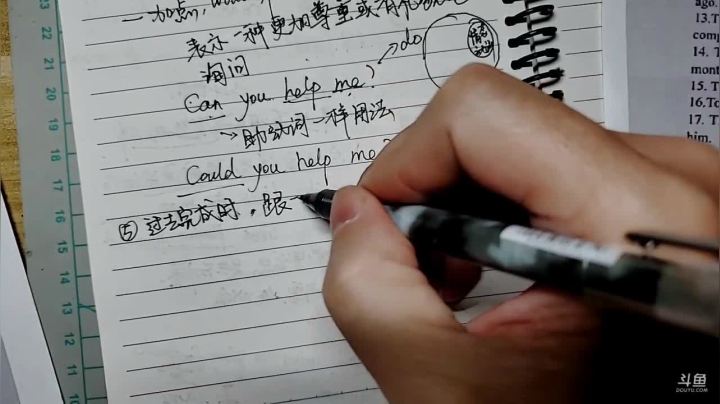 表示一种更加尊重或有礼貌地
询问
Can you help me?
do
情态
→助动词一样用法
Could you help me?
⑤ 过去完成时，跟一
23
22
21
20
19
18
17
16
15
14
13
12
11
10
ago.
13.T
com
14. T
mont
15. T
16.To
17. T
him.
斗鱼
DOUYU.COM